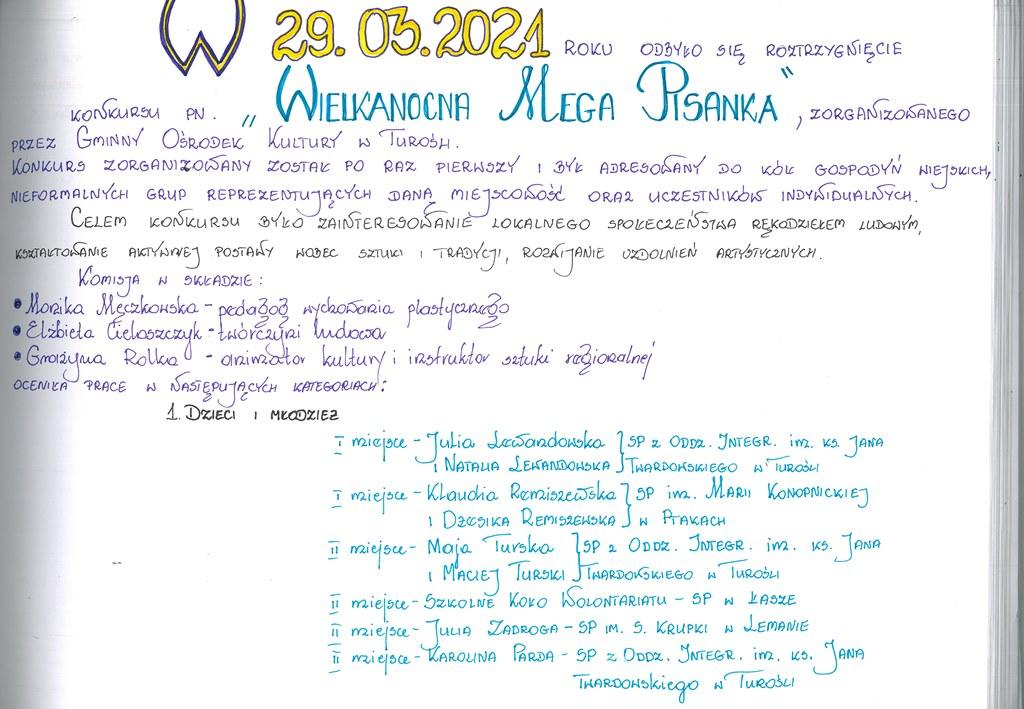 W 29.03.2021 ROKU ODBYŁO SIĘ ROZTRZYGNIĘCIE
KONKURSU PN. „WIELKANOCNA MEGA PISANKA”, ZORGANIZOWANEGO
PRZEZ GMINNY OŚRODEK KULTURY W TUROŚLI.
KONKURS ZORGANIZOWANY ZOSTAŁ PO RAZ PIERWSZY I BYŁ ADRESOWANY DO KÓŁ GOSPODYŃ WIEJSKICH,
NIEFORMALNYCH GRUP REPREZENTUJĄCYCH DANĄ MIEJSCOWOŚĆ ORAZ UCZESTNIKÓW INDYWIDUALNYCH.
CELEM KONKURSU BYŁO ZAINTERESOWANIE LOKALNEGO SPOŁECZEŃSTWA RĘKODZIEŁEM LUDOWYM,
KSZTAŁTOWANIE AKTYWNEJ POSTAWY WOBEC SZTUKI I TRADYCJI, ROZWIJANIE UZDOLNIEŃ ARTYSTYCZNYCH.
KOMISJA W SKŁADZIE:
• Monika Męczkowska - pedagog wychowania plastycznego
• Elżbieta Cieloszczyk - twórczyni ludowa
• Grażyna Rolka - animator kultury i instruktor sztuki regionalnej
OCENIŁA PRACE W NASTĘPUJĄCYCH KATEGORIACH:
1. DZIECI I MŁODZIEŻ
I miejsce - Julia Lewandowska } SP Z ODDZ. INTEGR. im. KS. JANA
I NATALIA LEWANDOWSKA } TWARDOWSKIEGO W TUROŚLI
I miejsce - Klaudia Remiszewska } SP im. MARII KONOPNICKIEJ
I DŻESIKA REMISZEWSKA } W PTAKACH
II miejsce - Maja Turska } SP Z ODDZ. INTEGR. im. KS. JANA
I MACIEJ TURSKI } TWARDOWSKIEGO W TUROŚLI
II miejsce - SZKOLNE KOŁO WOLONTARIATU - SP W ŁASZE
II miejsce - JULIA ZADROGA - SP IM. S. KRUPKI W LEMANIE
II miejsce - KAROLINA PARDA - SP Z ODDZ. INTEGR. im. KS. JANA
TWARDOWSKIEGO W TUROŚLI